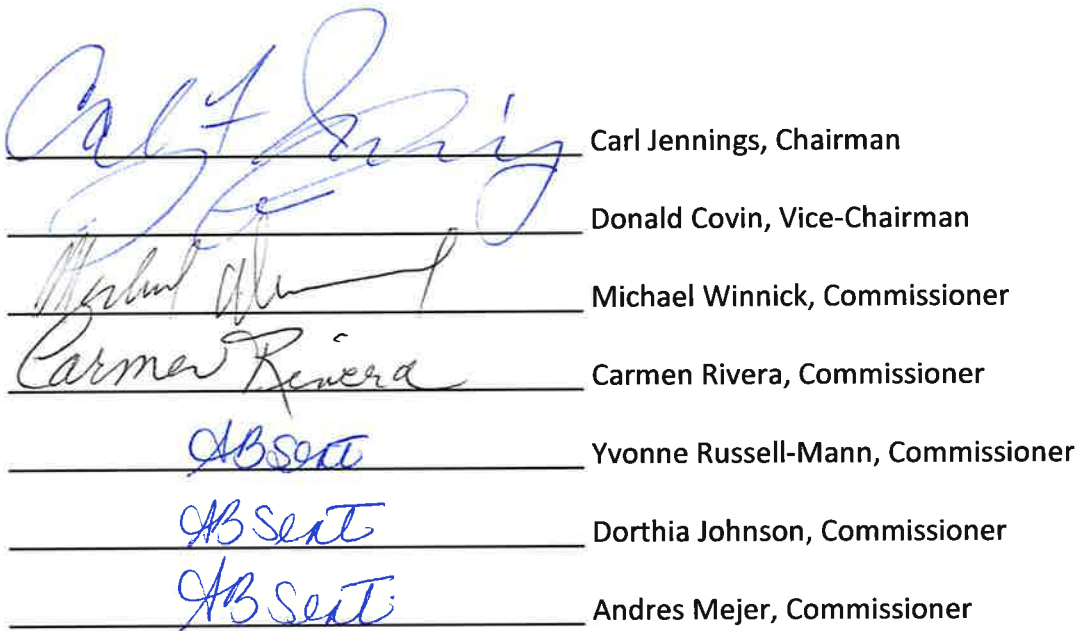 Carl F Jennings Carl Jennings, Chairman
Donald Covin, Vice-Chairman
Michael Winnick, Commissioner
Carmen Rivera Carmen Rivera, Commissioner
ABsent Yvonne Russell-Mann, Commissioner
ABSent Dorthia Johnson, Commissioner
ABSent Andres Mejer, Commissioner